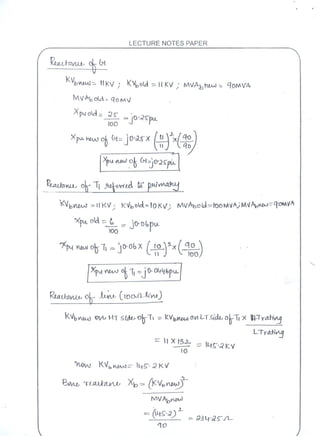 LECTURE NOTES PAPER
Reactance of G1
KVbnew = 11KV ; KVbold = 11KV ; MVAb,new = 90MVA
MVAbold = 90MV
Xpu old = 25/100 = j0.25pu
Xpu new of G1 = j0.25 x (11/11)² x (90/90)
Xpu new of G1 = j0.25pu
Reactance of T1 referred to primary
KVbnew = 11KV ; KVbold = 10KV ; MVAbold = 100MVA ; MVAbnew = 90MVA
Xpu old = 6/100 = j0.06pu
Xpu new of T1 = j0.06 x (10/11)² x (90/100)
Xpu new of T1 = j0.0446pu
Reactance of line (100Ω line)
KVbnew on HT side of T1 = KVbnew on LT side of T1 x HT rating
LT rating
= 11 x 132/10 = 145.2KV
now KVbnew = 145.2KV
Base reactance Xb = (KVbnew)²
MVAbnew
= (145.2)²/90 = 234.25Ω